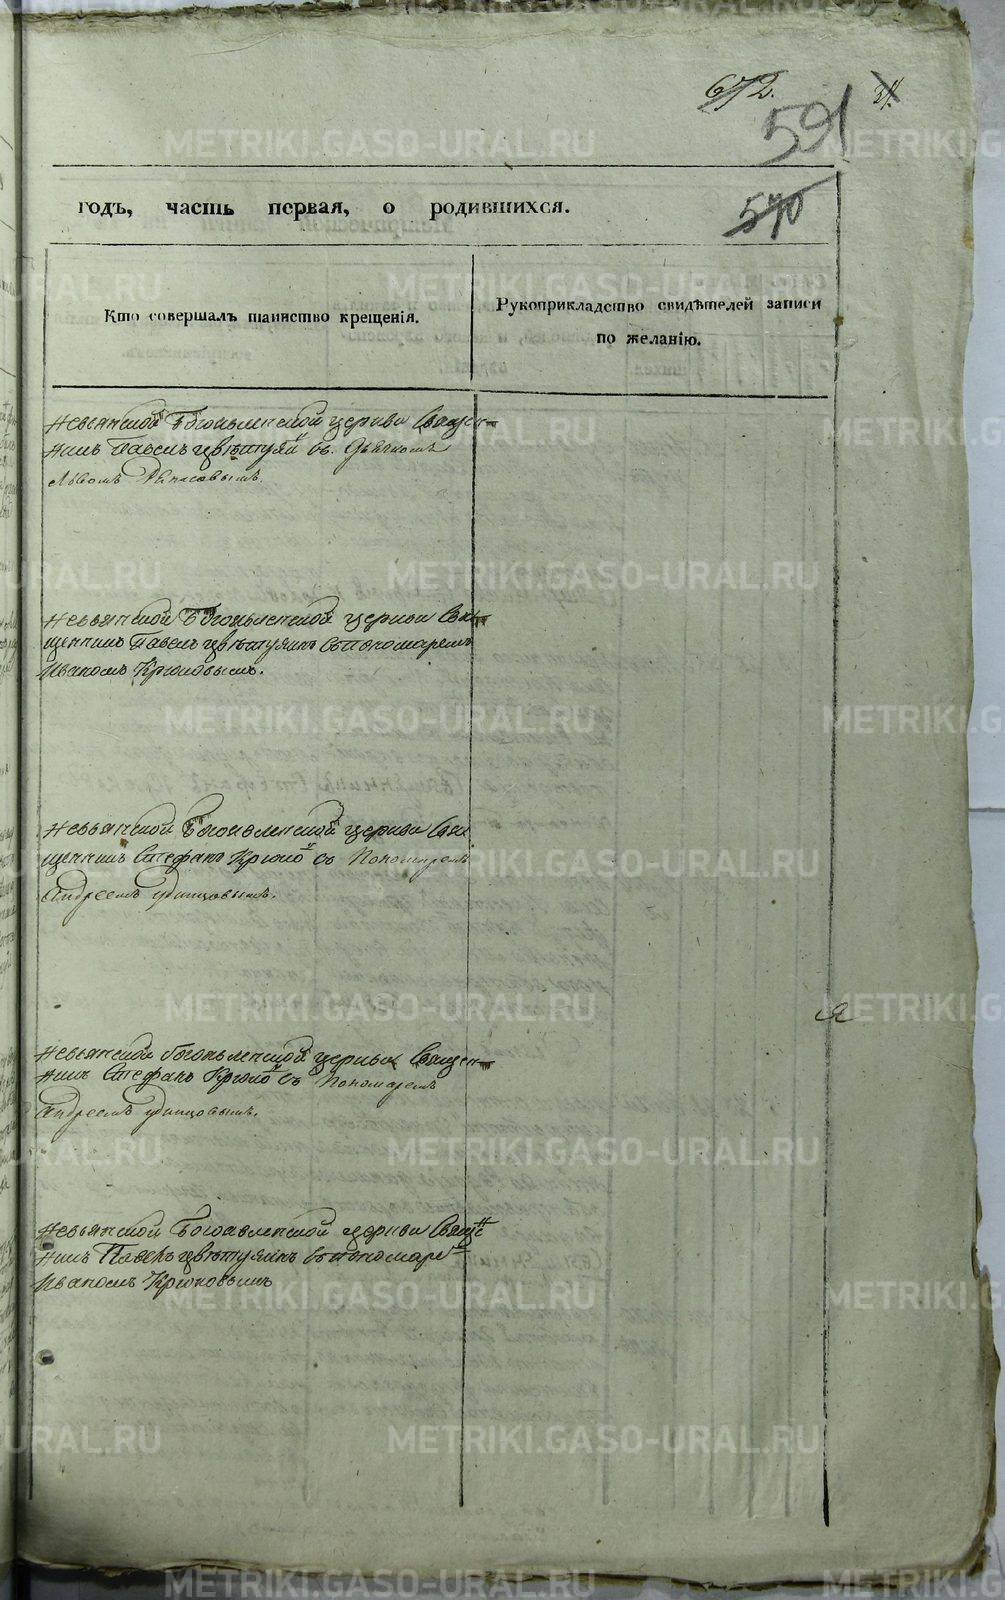 METRIKI.GASO-URAL.RU
672.
591
годъ, часть первая, о родившихся.
570
Кто совершалъ таинство крещенія.
Рукоприкладство свидѣтелей записи
по желанію.
Невьянской Богоявленской церкви Священ-
никъ Павелъ Цвѣтухи͞н съ Дьячкомъ
Львомъ
Невьянской Богоявленской церкви Свя
щенникъ Павелъ Цвѣтухинъ съ пономаремъ
Иваномъ Крюковымъ.
Невьянской Богоявленской церкви Свя
щенникъ Стефанъ Крюко съ Пономаремъ
Андреемъ Удинцовымъ.
Невьянской Богоявленской церкви Священ-
никъ Стефанъ Крюко съ Пономаремъ
Андреемъ Удинцовымъ.
Невьянской Богоявленской церкви Свяще
никъ Павелъ Цвѣтухинъ съ пономаре
Иваномъ Крюковымъ